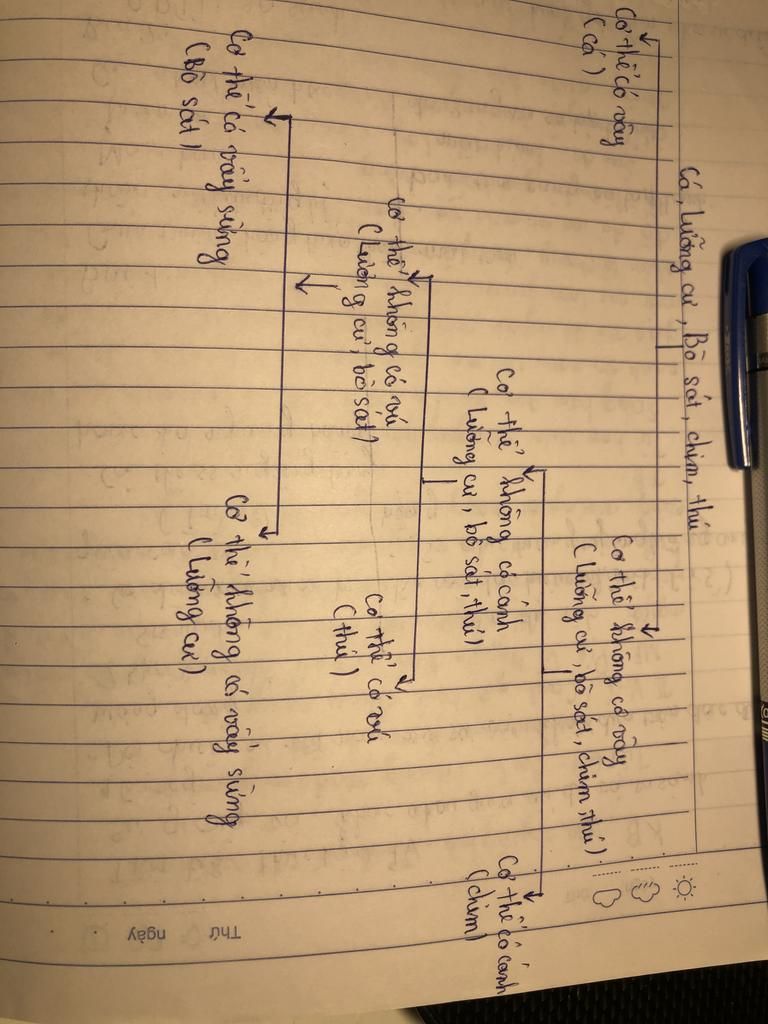 Cá, Lưỡng cư, Bò sát, chim, thú
Cơ thể có vây
(cá)
Cơ thể không có vây
(Lưỡng cư, bò sát, chim, thú)
Cơ thể không có cánh
(Lưỡng cư, bò sát, thú)
Cơ thể có cánh
(chim)
Cơ thể không có vú
(Lưỡng cư, bò sát)
Cơ thể có vú
(thú)
Cơ thể có vảy sừng
(Bò sát)
Cơ thể không có vảy sừng
(Lưỡng cư)
Thứ ngày